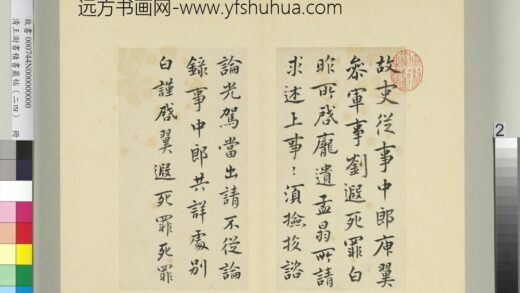 远方书画网-www.yfshuhua.com
故書000744N000000000
清王澍書積書巖帖(二四) 冊
故吏從事中郎庾翼
參軍事劉遐死罪白
昨所啓龐遺孟昜所請
求述上事〻須撿挍諮
論光駕當出請不從論
錄事中郎共詳處別
白謹啓翼遐死罪死罪
2